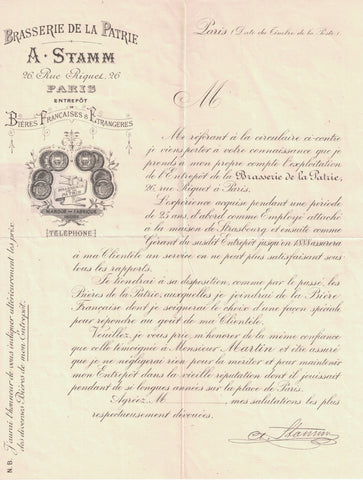 BRASSERIE DE LA PATRIE
A. STAMM
26 Rue Riquet, 26
PARIS
ENTREPÔT
DE
BIÈRES FRANÇAISES & ETRANGÈRES
MARQUE DE FABRIQUE
TÉLÉPHONE
Paris (Date du Timbre de la Poste)
M
Me référant à la circulaire ci-contre
je viens porter à votre connaissance que je
prends à mon propre compte l'exploitation
de l'Entrepôt de la Brasserie de la Patrie,
26, rue Riquet à Paris.
L'expérience acquise pendant une période
de 25 ans d'abord comme Employé attaché
à la maison de Strasbourg et ensuite comme
Gérant du susdit Entrepôt jusqu'en 1888 assurera
à ma Clientèle un service on ne peut plus satisfaisant sous
tous les rapports.
Je tiendrai à sa disposition, comme par le passé, les
Bières de la Patrie, auxquelles je joindrai de la Bière
Française dont je soignerai le choix d'une façon spéciale
pour répondre au goût de ma Clientèle.
Veuillez, je vous prie, m'honorer de la même confiance
que celle témoignée à Monsieur Martin et être assuré
que je ne négligerai rien pour la mériter et pour maintenir
mon Entrepôt dans la vieille réputation dont il jouissait
pendant de si longues années sur la place de Paris.
Agréez, M, mes salutations les plus
respectueusement dévouées.
A. Stamm
N.B. J'aurai l'honneur de vous indiquer ultérieurement les prix
des diverses Bières de mon Entrepôt.